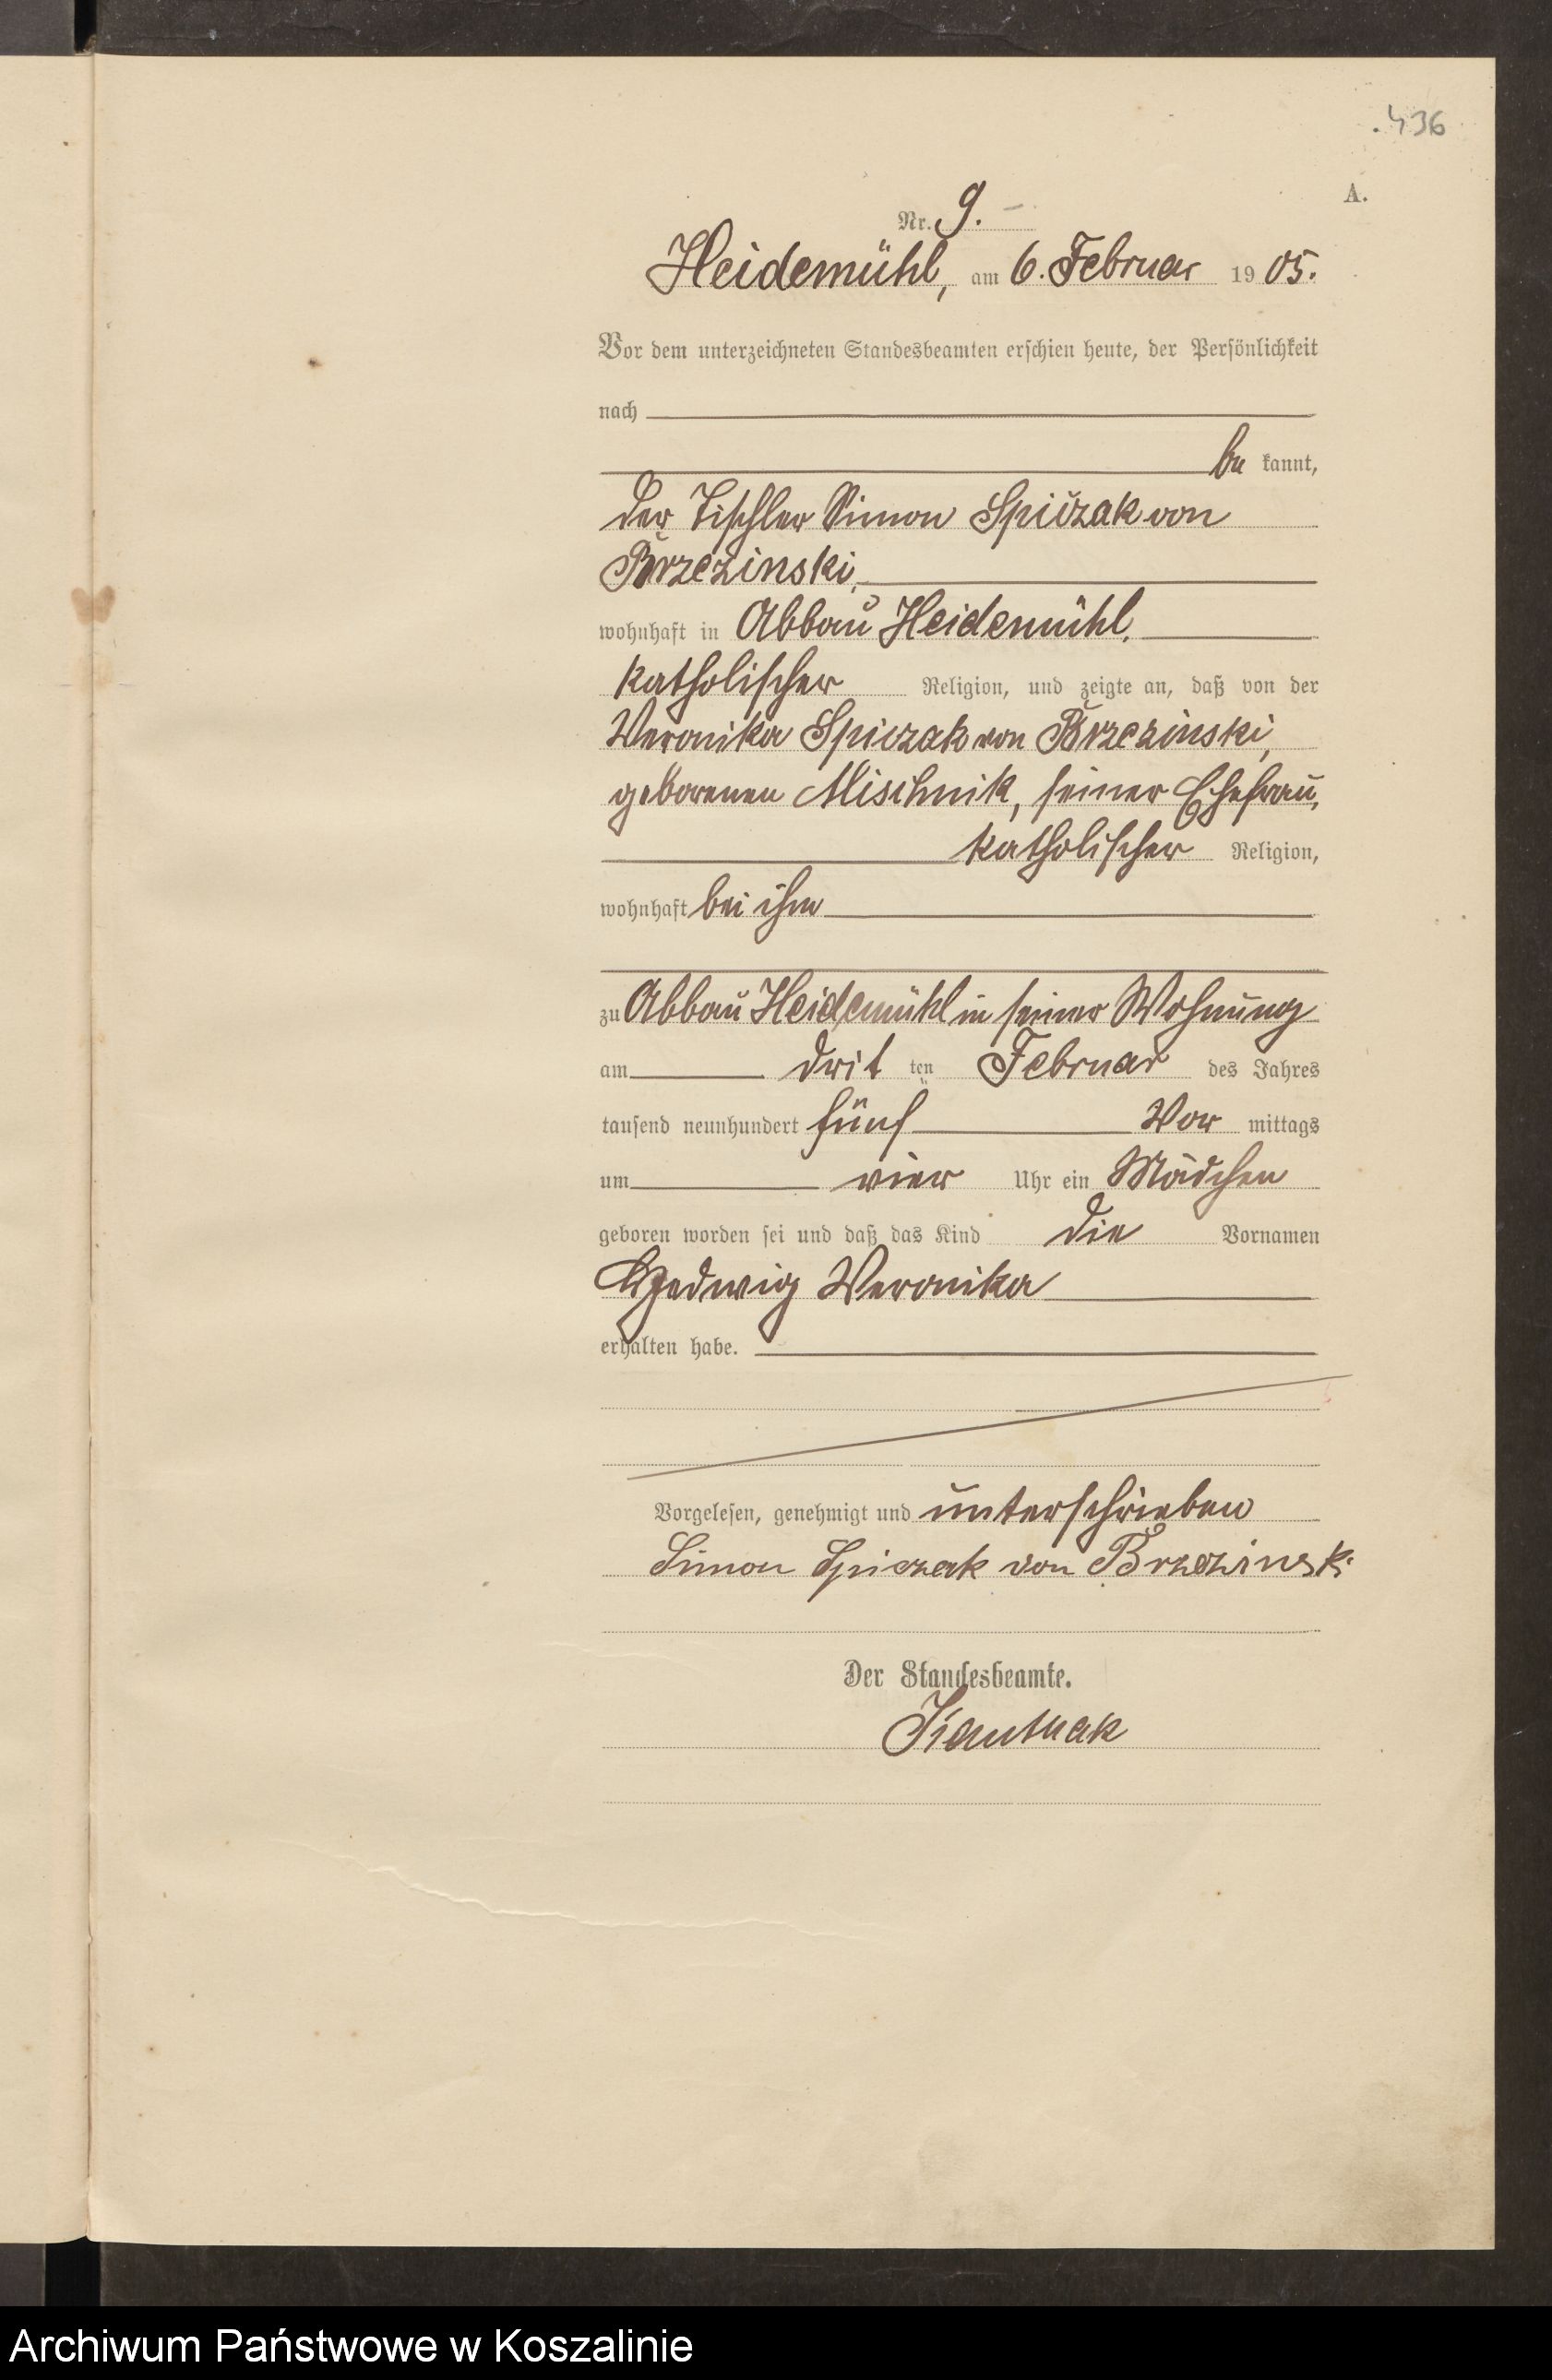 436
A.
Nr. 9.
Heidemühl, am 6. Februar 1905.
Vor dem unterzeichneten Standesbeamten erschien heute, der Persönlichkeit
nach
be kannt,
der Tischler Simon Spiczak von
Brzezinski,
wohnhaft in Abbau Heidemühl,
katholischer Religion, und zeigte an, daß von der
Veronika Spiczak von Brzezinski,
geborenen Mischnik, seiner Ehefrau,
katholischer Religion,
wohnhaft bei ihm
zu Abbau Heidemühl in seiner Wohnung
am drit ten Februar des Jahres
tausend neunhundert fünf Vor mittags
um vier Uhr ein Mädchen
geboren worden sei und daß das Kind die Vornamen
Hedwig Veronika
erhalten habe.
Vorgelesen, genehmigt und unterschrieben
Simon Spiczak von Brzezinski
Der Standesbeamte.
Archiwum Państwowe w Koszalinie